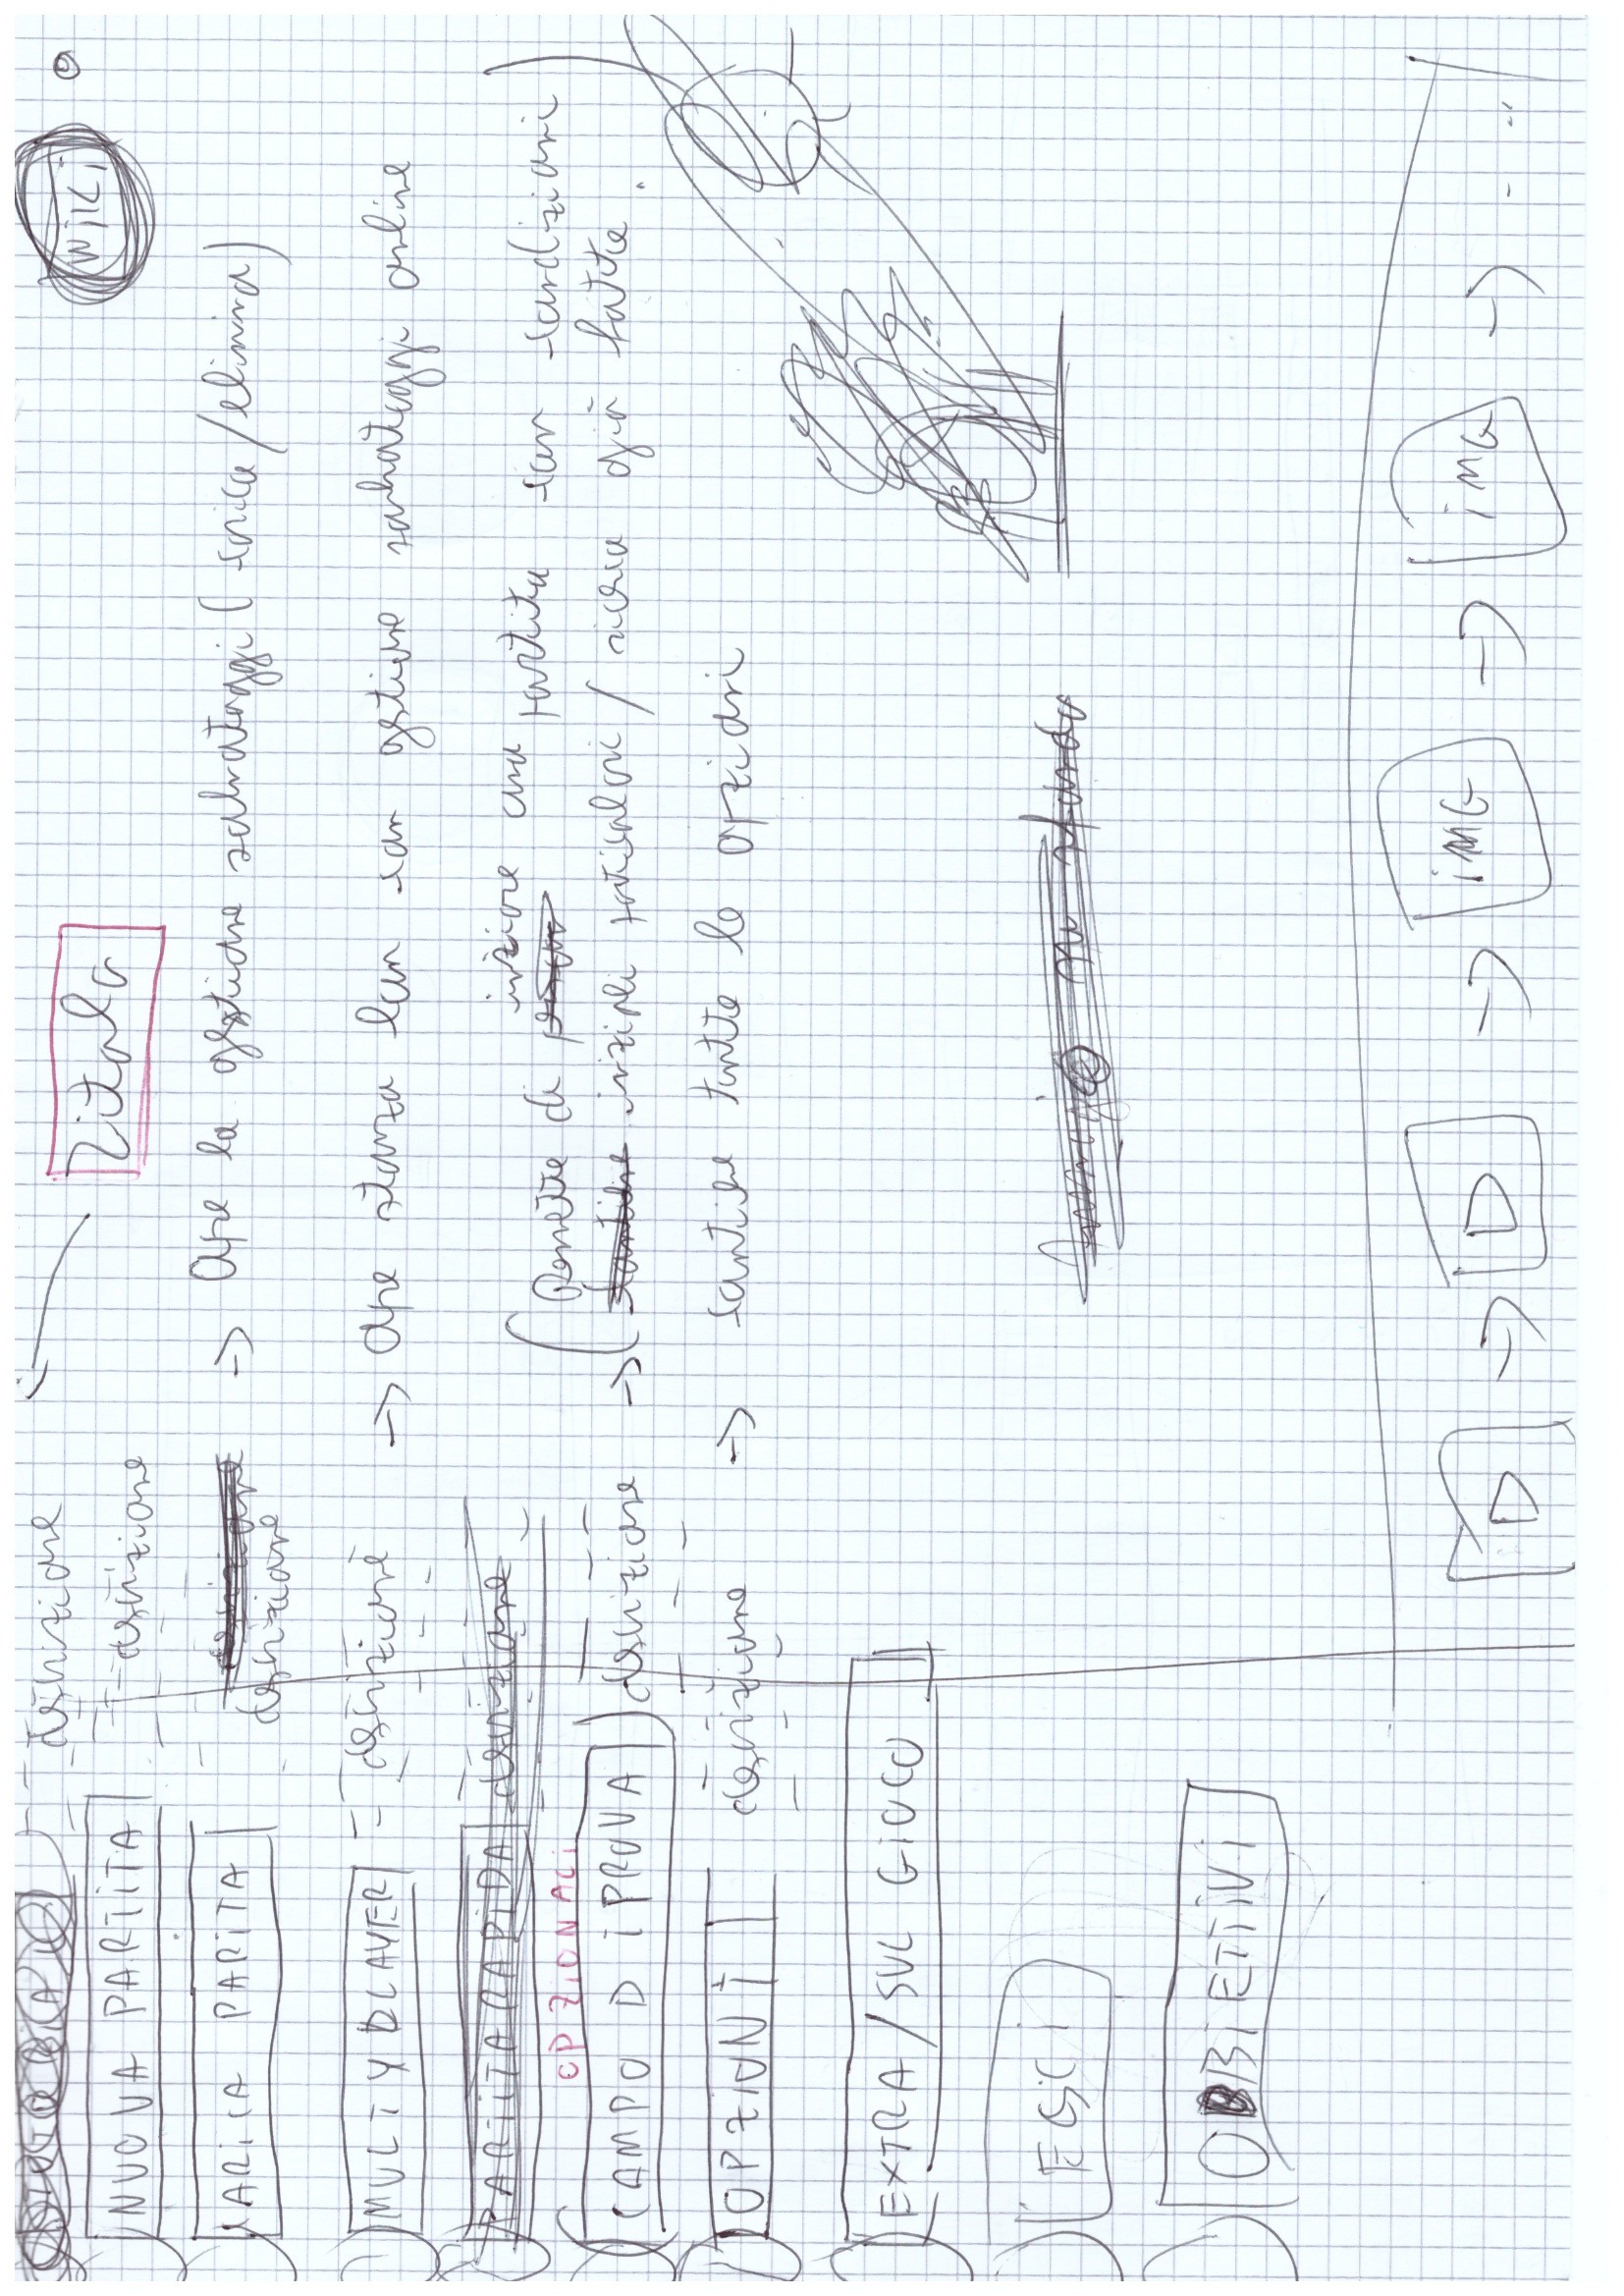 TUTORIAL descrizione
Titolo
WIKI
NUOVA PARTITA descrizione
CARICA PARITA descrizione -> apre la gestione salvataggi (carica/elimina)
descrizione
MULTYPLAYER = descrizione -> apre stanza lan con gestione salvataggi online
PARTITA RAPIDA descrizione
OPZIONALI
(CAMPO DI PROVA) descrizione -> (Permette di iniziare una partita con condizioni
iniziali particolari / ricerca già fatte.)
OPZIONI descrizione -> contiene tutte le opzioni
EXTRA / SUL GIOCO
ESCI
su sfondo
OBBIETTIVI
IMG -> IMG -> ...